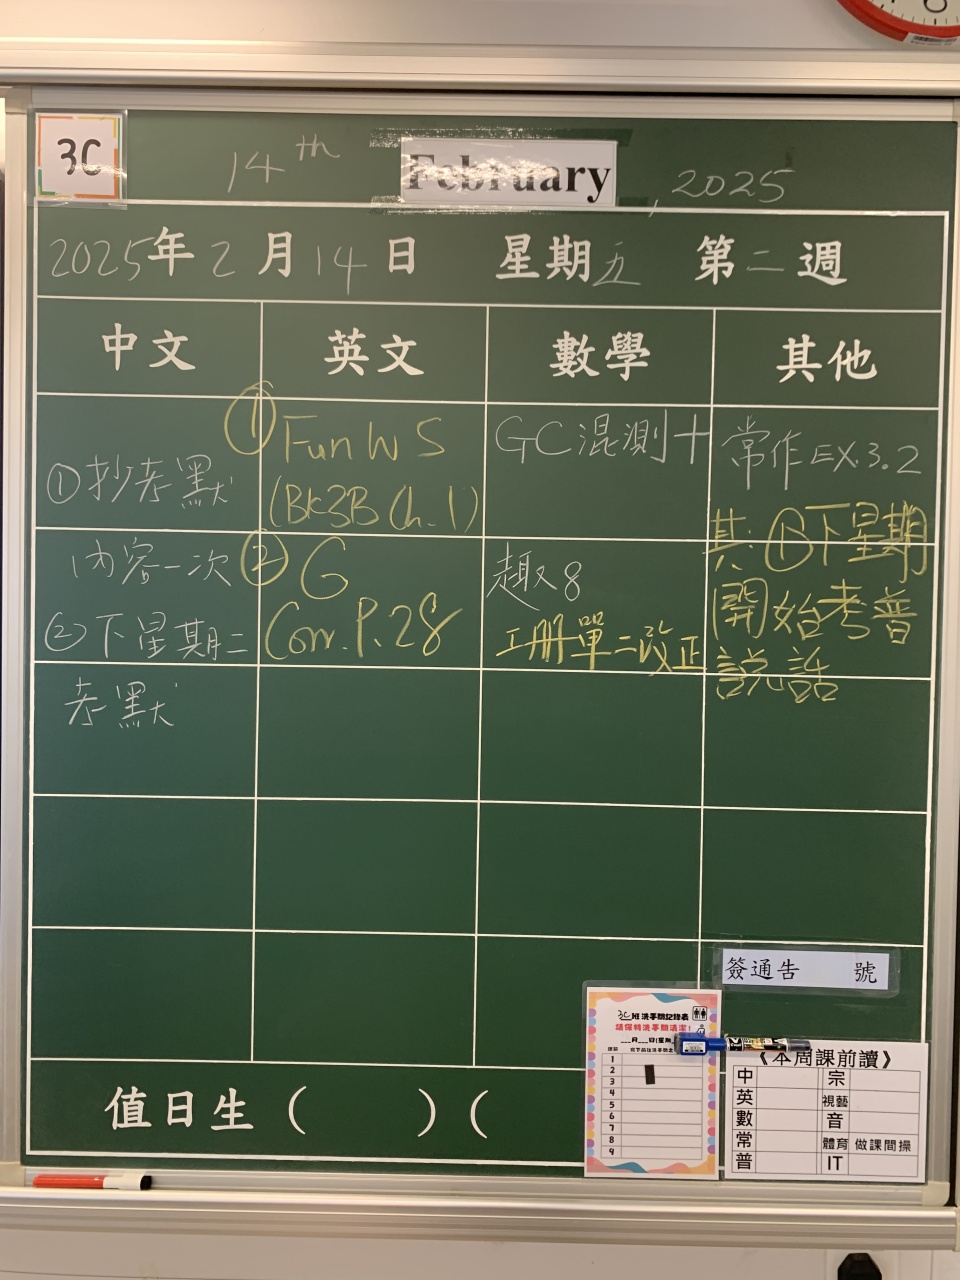 3C
14th February, 2025
2025年2月14日 星期五 第二週
中文 英文 數學 其他
①抄默
內容一次
②下星期二
默
① Fun WS
(BK3B Ch.1)
② G
Corr. P.28
GC混測十
趣8
工冊單二改正
常作EX.3.2
其:下星期
開始考普
說話
簽通告 號
3C班洗手間記錄表
請保持洗手間清潔!
月 日(星期
1
2
3
4
5
6
7
8
9
《本周課前讀》
中 宗
英 視藝
數 音
常 體育 做課間操
普 IT
值日生 ( ) (